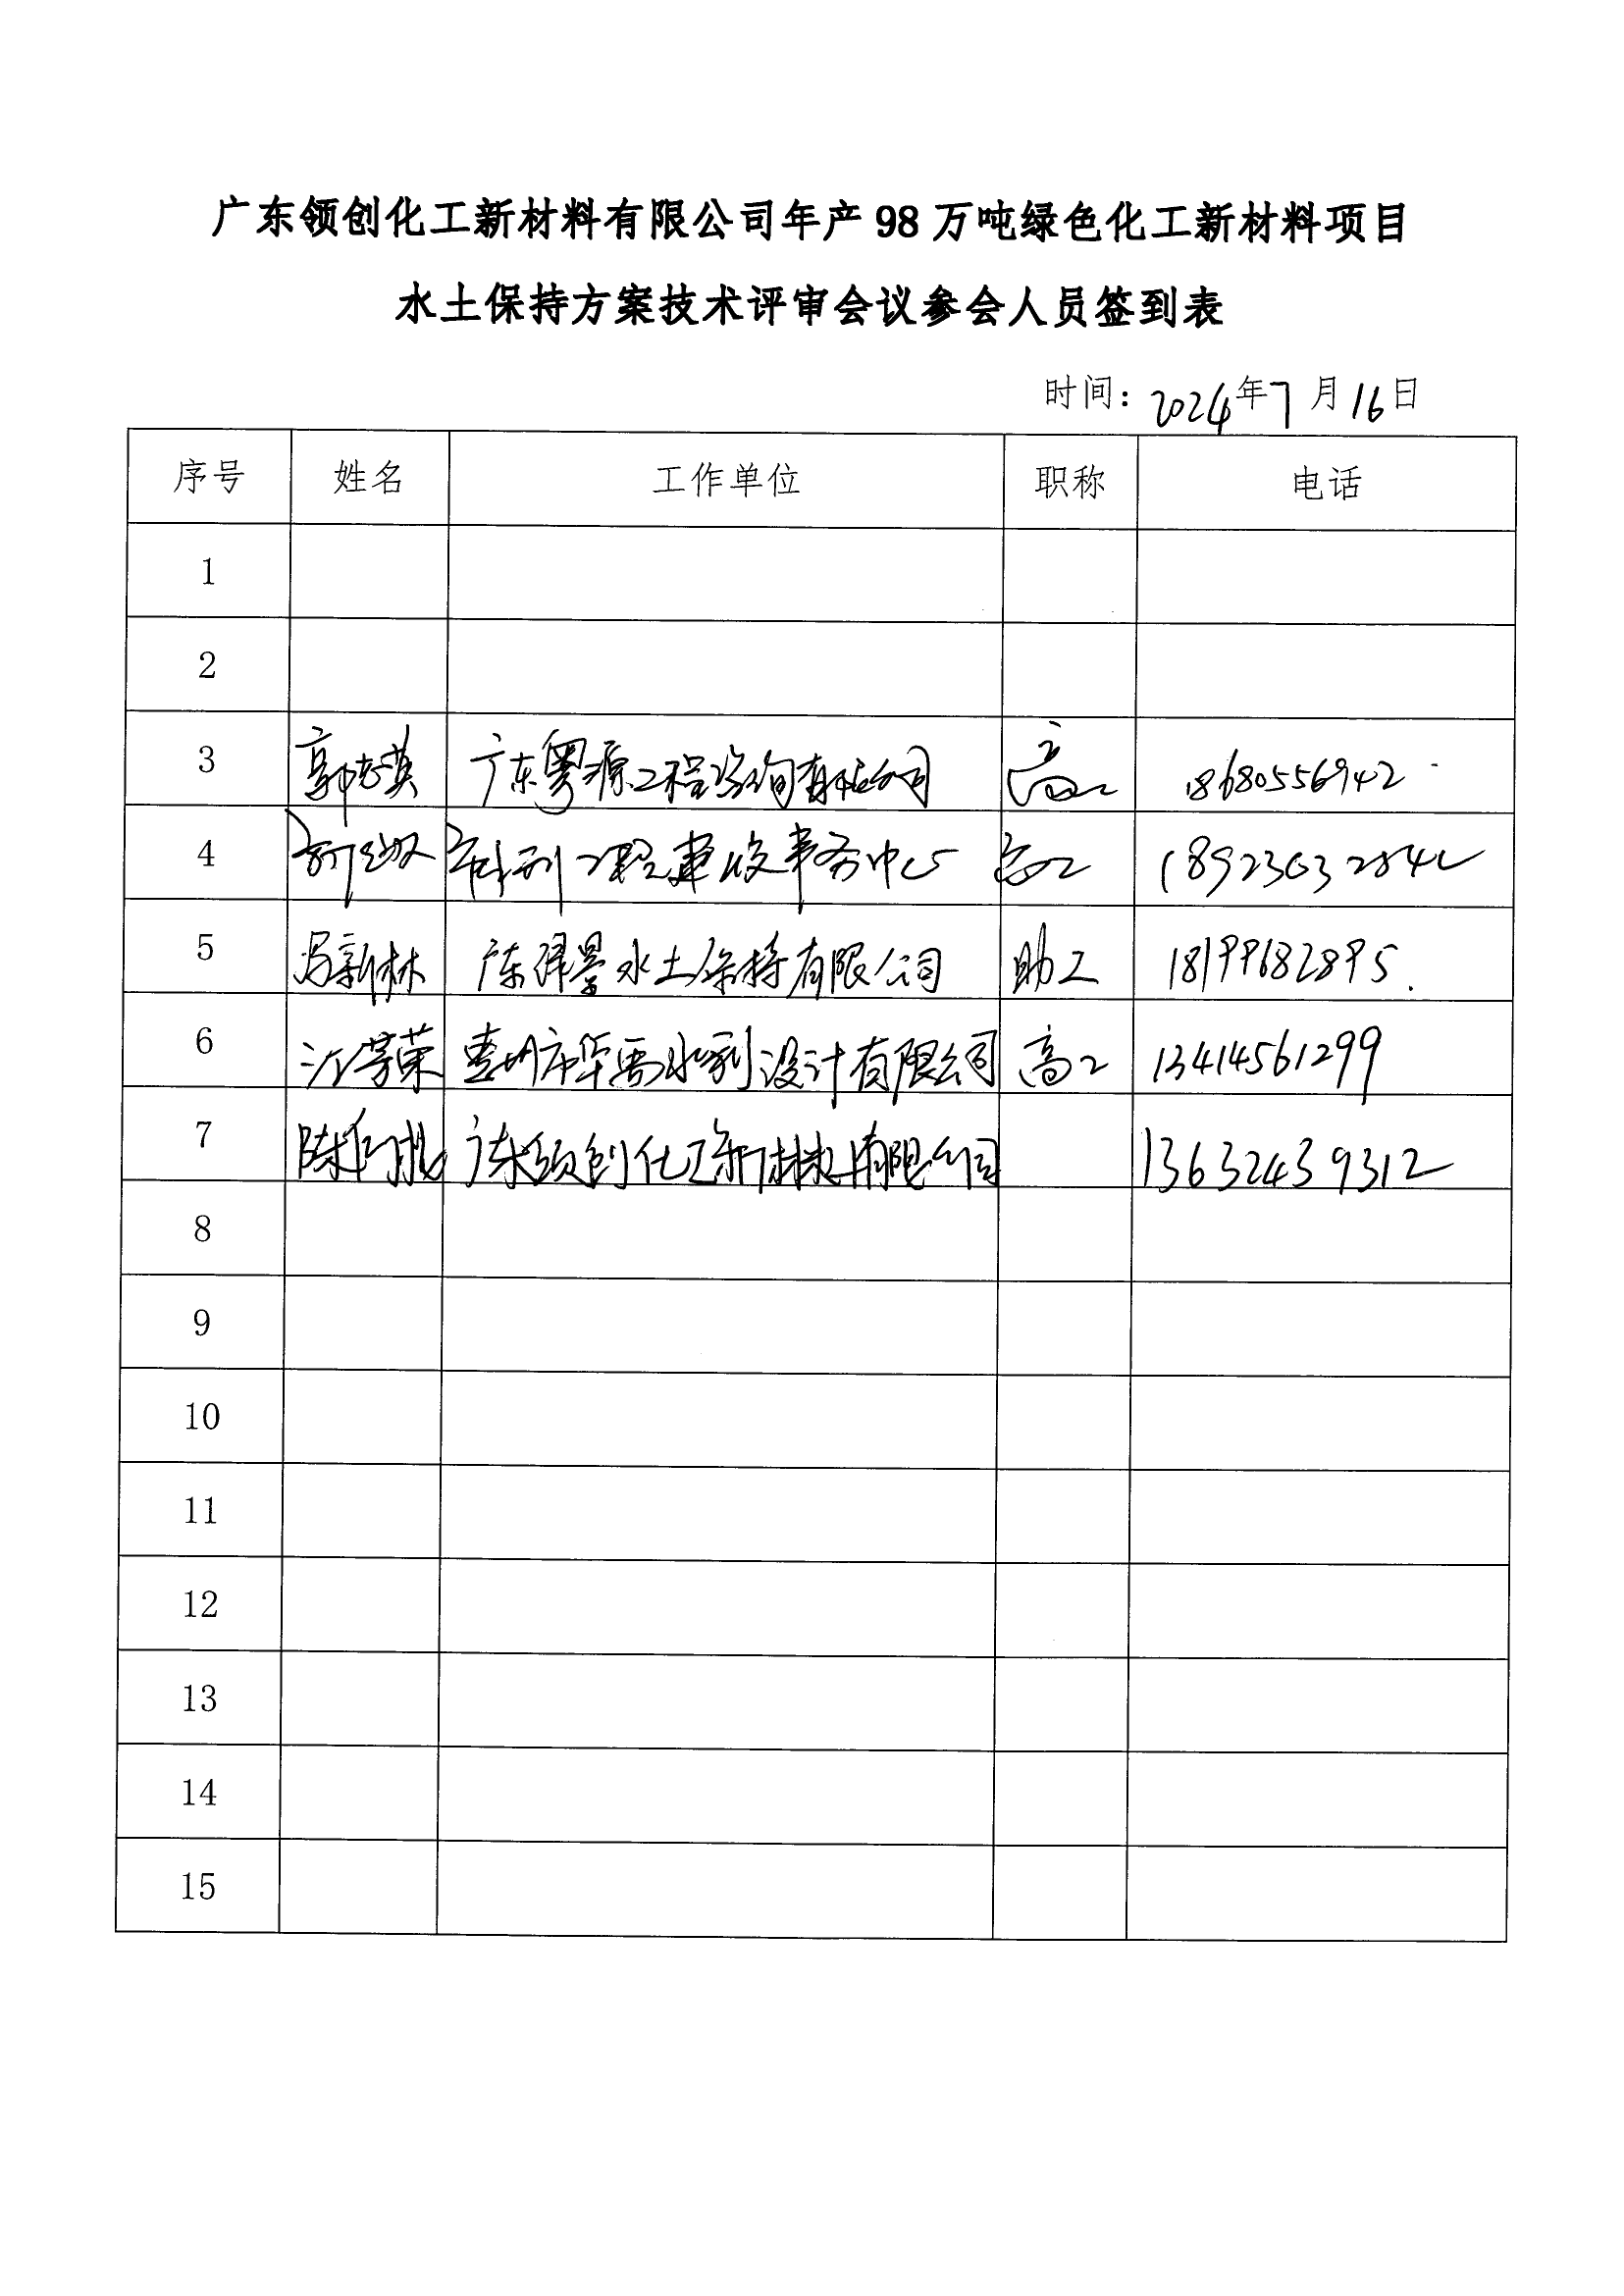 广东领创化工新材料有限公司年产 98 万吨绿色化工新材料项目
水土保持方案技术评审会议参会人员签到表
时间：2024年7月16日
序号 姓名 工作单位 职称 电话
1
2
3 郭志英 广东粤源工程咨询有限公司 高工 18680556942
4 水利工程建设事务中心 高工
5 冯新林 广东 景水土保持有限公司 助工 18199682895.
6 江芳荣 惠州市华禹水利设计有限公司 高工 13414561299
7 陈 广东领创化工新材料有限公司 13632439312
8
9
10
11
12
13
14
15